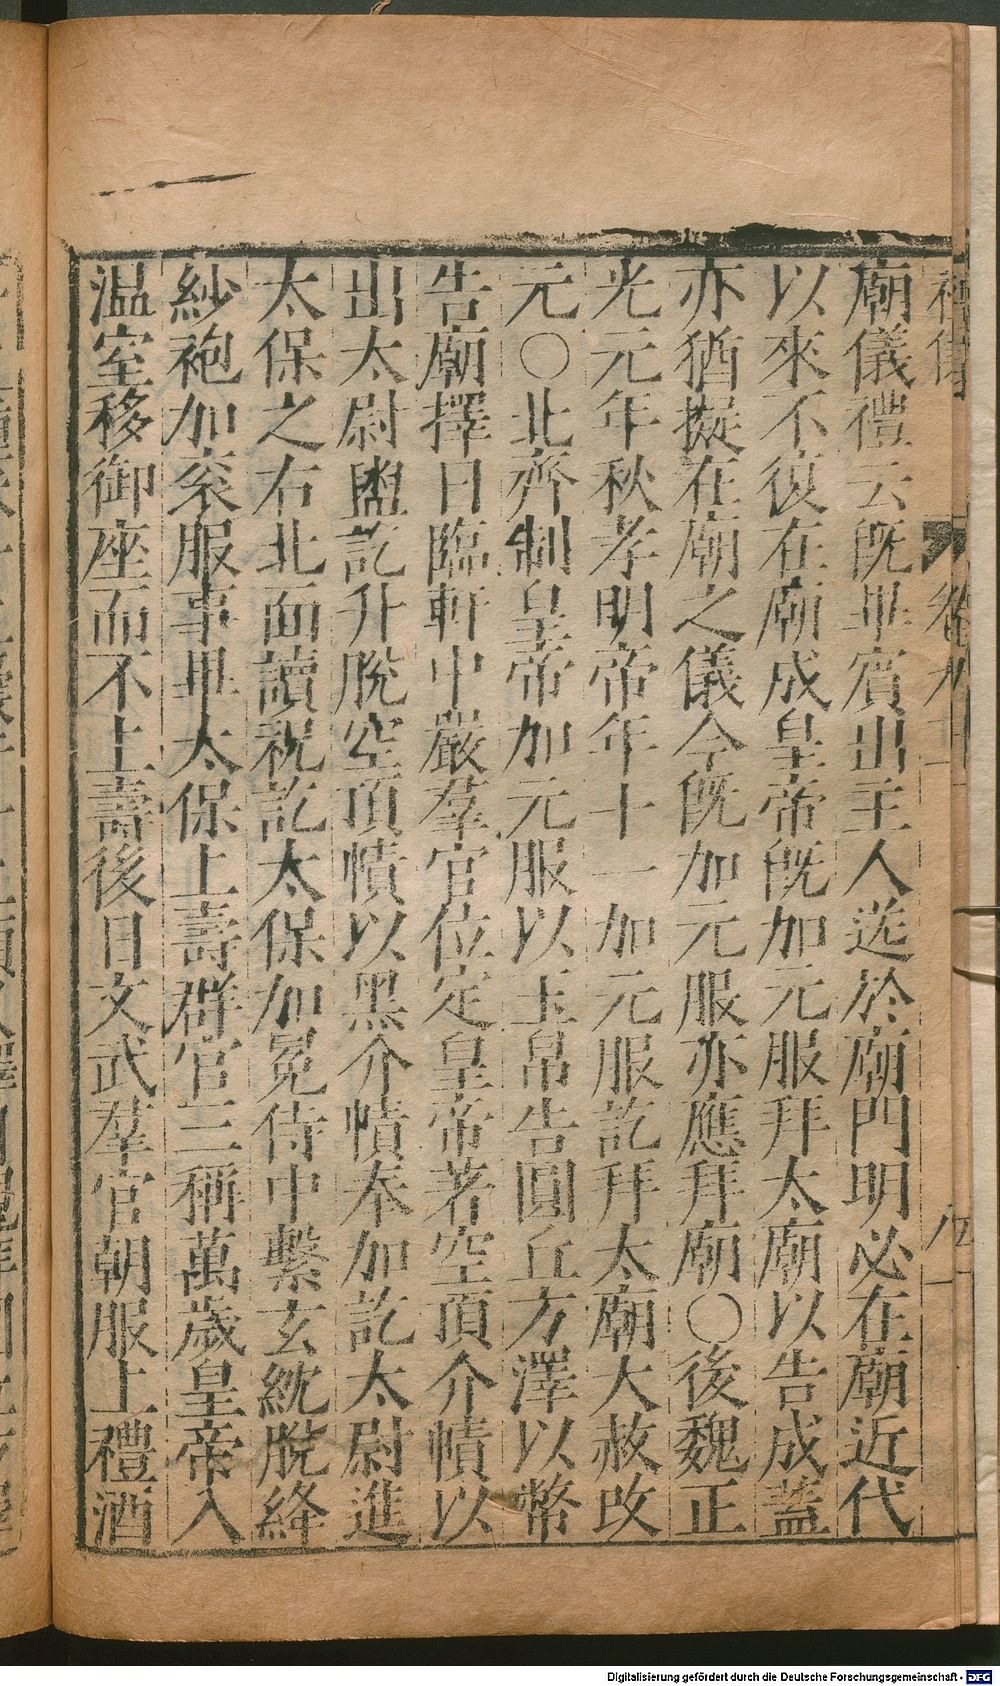 廟儀禮云既畢賓出主人送於廟門明必在廟近代
以來不復在廟成皇帝既加元服拜太廟以告成蓋
亦猶擬在廟之儀今既加元服亦應拜廟〇後魏正
光元年秋孝明帝年十一加元服訖拜太廟大赦改
元〇北齊制皇帝加元服以玉帛告圓丘方澤以幣
告廟擇日臨軒中嚴羣官位定皇帝著空頂介幘以
出太尉盥訖升脫空頂幘以黑介幘奉加訖太尉進
太保之右北面讀祝訖太保加冕侍中繫玄紞脫絳
紗袍加衮服事畢太保上壽群官三稱萬歲皇帝入
溫室移御座而不上壽後日文武羣官朝服上禮酒
Digitalisierung gefördert durch die Deutsche Forschungsgemeinschaft - DFG